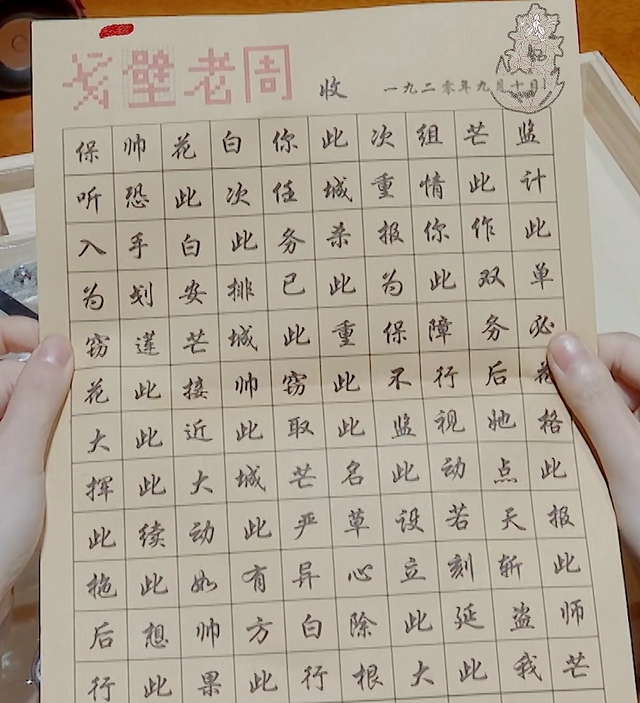 戈壁老周 收 一九二零年九月十日
保帅花白你此次组芒监
听恐此次任城重情此计
入手白此务杀报你作此
为划安排已此为此双单
窃莲芒城此重保障务必
花此接帅窃此不行后花
大此近此取此监视她格
挥此大城芒名此动点此
此续动此严草设若天报
拖此如有异心立刻斩此
后想帅方白除此延盗师
行此果此行根大此我芒